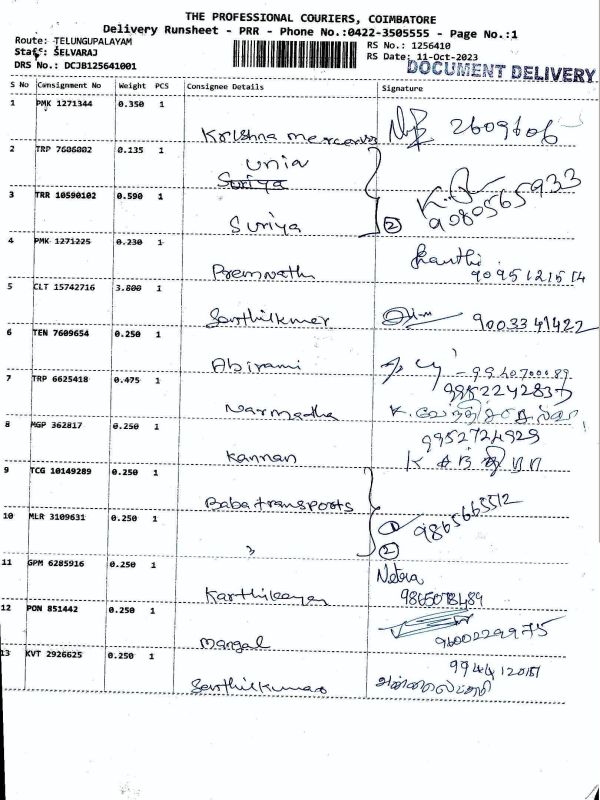 THE PROFESSIONAL COURIERS, COIMBATORE
Delivery Runsheet - PRR - Phone No.:0422-3505555 - Page No.:1
Route: TELUNGUPALAYAM
RS No.: 1256410
Staff: SELVARAJ
RS Date: 11-Oct-2023
DRS No.: DCJB125641001
DOCUMENT DELIVERY
S No Consignment No Weight PCS Consignee Details Signature
1 PMK 1271344 0.350 1
Krishna 2609606
2 TRP 7606002 0.135 1
Unia
Suriya
3 TRR 10590102 0.590 1
9080565933
Suriya 2
4 PMK 1271225 0.230 1
Premnath
9095121514
5 CLT 15742716 3.800 1
Senthilkumer 9003341422
6 TEN 7609654 0.250 1
Abirami
7 TRP 6625418 0.475 1
Narmadha
8 MGP 362817 0.250 1
9952724929
Kannan
9 TCG 10149289 0.250 1
Baba transports
9865665512
10 MLR 3109631 0.250 1
2
11 GPM 6285916 0.250 1
Karthikeyan
12 PON 851442 0.250 1
9600229975
Mangal
13 KVT 2926625 0.250 1
Senthilkumar